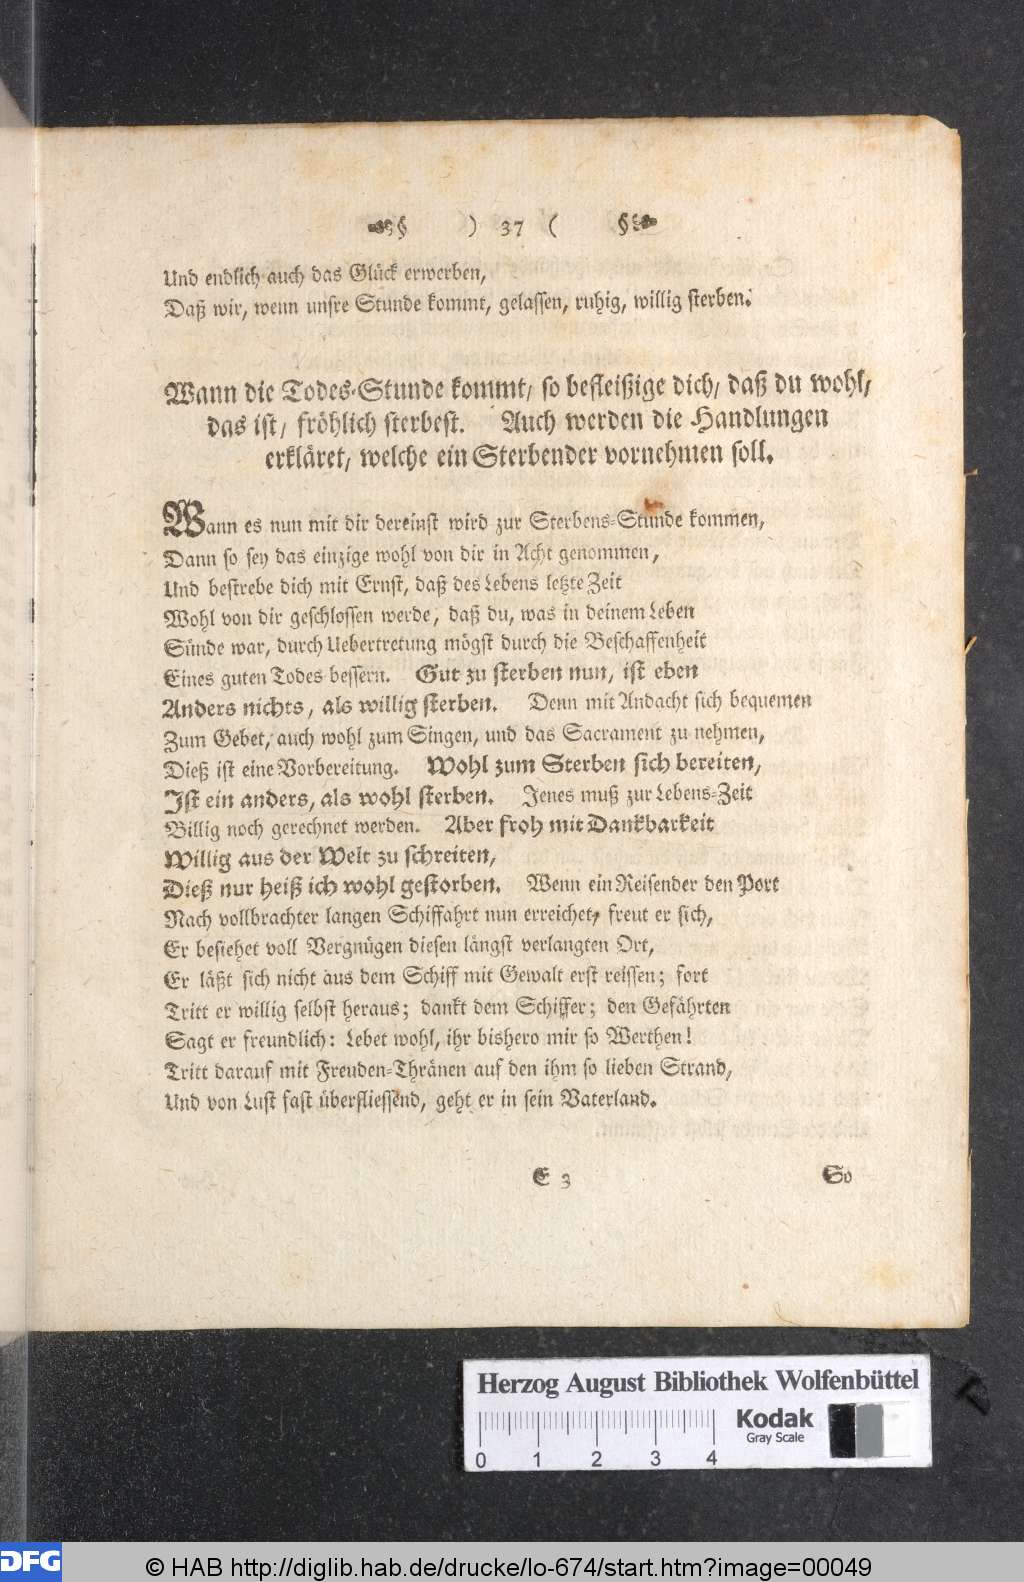 § ) 37 ( §
Und endlich auch das Glück erwerben,
Daß wir, wenn unsre Stunde kommt, gelassen, ruhig, willig sterben.
Wann die Todes-Stunde kommt/ so befleißige dich/ daß du wohl/
das ist/ fröhlich sterbest. Auch werden die Handlungen
erkläret/ welche ein Sterbender vornehmen soll.
Wann es nun mit dir dereinst wird zur Sterbens-Stunde kommen,
Dann so sey das einzige wohl von dir in Acht genommen,
Und bestrebe dich mit Ernst, daß des Lebens letzte Zeit
Wohl von dir geschlossen werde, daß du, was in deinem Leben
Sünde war, durch Uebertretung mögst durch die Beschaffenheit
Eines guten Todes bessern. Gut zu sterben nun, ist eben
Anders nichts, als willig sterben. Denn mit Andacht sich bequemen
Zum Gebet, auch wohl zum Singen, und das Sacrament zu nehmen,
Dieß ist eine Vorbereitung. Wohl zum Sterben sich bereiten,
Ist ein anders, als wohl sterben. Jenes muß zur Lebens-Zeit
Billig noch gerechnet werden. Aber froh mit Dankbarkeit
Willig aus der Welt zu schreiten,
Dieß nur heiß ich wohl gestorben. Wenn ein Reisender den Port
Nach vollbrachter langen Schiffahrt nun erreichet, freut er sich,
Er besiehet voll Vergnügen diesen längst verlangten Ort,
Er läßt sich nicht aus dem Schiff mit Gewalt erst reissen; fort
Tritt er willig selbst heraus; dankt dem Schiffer; den Gefährten
Sagt er freundlich: Lebet wohl, ihr bishero mir so Werthen!
Tritt darauf mit Freuden-Thränen auf den ihm so lieben Strand,
Und von Lust fast überfliessend, geht er in sein Vaterland.
E 3 So
Herzog August Bibliothek Wolfenbüttel
Kodak
Gray Scale
0 1 2 3 4
DFG © HAB http://diglib.hab.de/drucke/lo-674/start.htm?image=00049